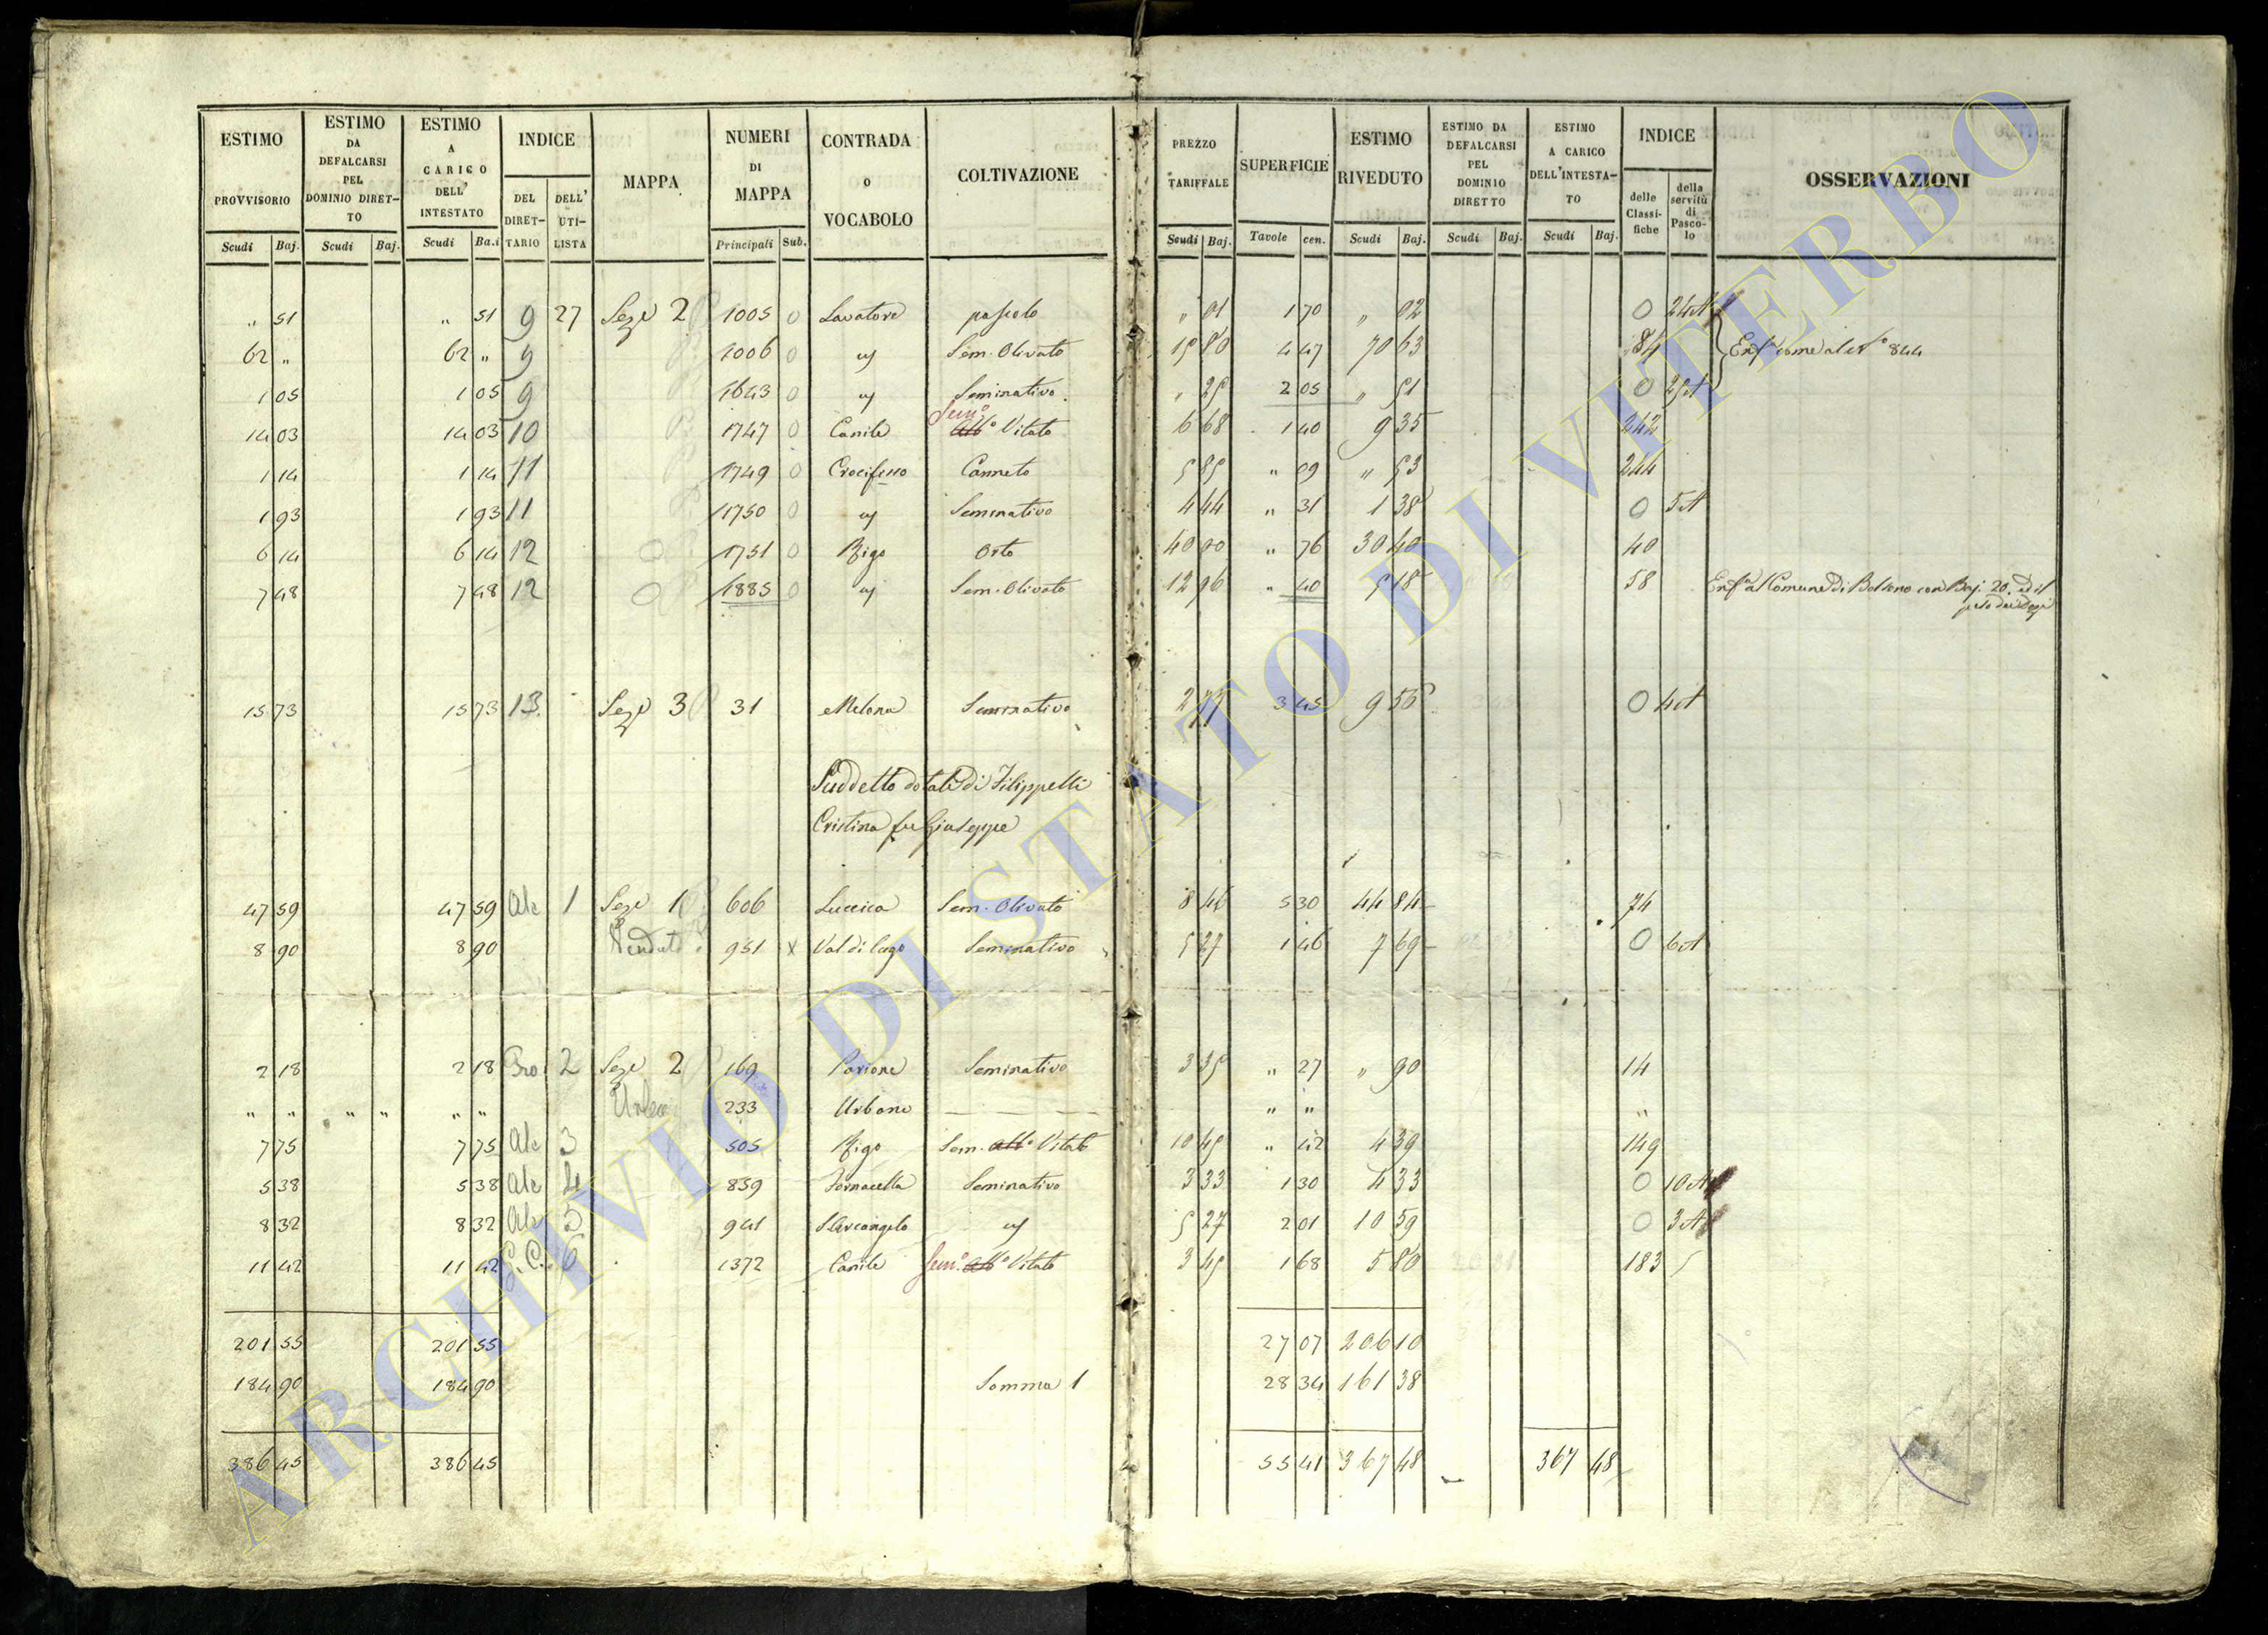 ESTIMO PROVVISORIO Scudi Baj.
ESTIMO DA DEFALCARSI PEL DOMINIO DIRETTO Scudi Baj.
ESTIMO A CARICO DELL' INTESTATO Scudi Ba.i
INDICE DEL DIRETTARIO DELL' UTILISTA
MAPPA
NUMERI DI MAPPA Principali Sub.
CONTRADA O VOCABOLO
COLTIVAZIONE
PREZZO TARIFFALE Scudi Baj.
SUPERFICIE Tavole cen.
ESTIMO RIVEDUTO Scudi Baj.
ESTIMO DA DEFALCARSI PEL DOMINIO DIRETTO Scudi Baj.
ESTIMO A CARICO DELL'INTESTATO Scudi Baj.
INDICE delle Classifiche della servitù di Pascolo
OSSERVAZIONI
" 51 " 51 9 27 Seze 2 1005 0 Lavatore pascolo " 01 1 70 " 02 0 24A
62 " 62 " 9 1006 0 Sem. Olivato 15 80 4 47 70 63 84 Enfa come al N.o 844
1 05 1 05 9 1643 0 Seminativo " 25 2 05 " 51 0 25A
14 03 14 03 10 1747 0 Canile Semo Vitato 6 68 1 40 9 35 242
1 14 1 14 11 1749 0 Crocifisso Canneto 5 85 " 09 " 53 244
1 93 1 93 11 1750 0 Seminativo 4 44 " 31 1 38 0 5A
6 14 6 14 12 1751 0 Rigo Orto 40 00 " 76 30 40 40
7 48 7 48 12 1885 0 Sem. Olivato 12 96 " 40 5 18 58 Enfa al Comune di Bolseno con Baj. 20. ed il
peso dei Dazj
15 73 15 73 13 Seze 3 31 Melona Seminativo 2 77 3 45 9 56 0 4A
Suddetto dotale di Filippetti
Cristina fu Giuseppe
47 59 47 59 Ale 1 Seze 1 606 Luccica Sem. Olivato 8 46 5 30 44 84 74
8 90 8 90 Venduto 951 x Val di lago Seminativo 5 27 1 46 7 69 0 6A
2 18 2 18 Pro 2 Seze 2 169 Parione Seminativo 3 35 " 27 " 90 14
" " " " " " Urbano 233 Urbano " " "
7 75 7 75 Ale 3 505 Rigo Sem. Vitato 10 45 " 42 4 39 149
5 38 5 38 Ale 4 859 Fornacella Seminativo 3 33 1 30 4 33 0 10A
8 32 8 32 Ale 5 941 S. Arcangelo 5 27 2 01 10 59 0 3A
11 42 11 42 G. C. 6 1372 Canile Semo Vitato 3 45 1 68 5 80 183
201 55 201 55 27 07 206 10
184 90 184 90 Somma 1 28 34 161 38
386 45 386 45 55 41 367 48 367 48
ARCHIVIO DI STATO DI VITERBO